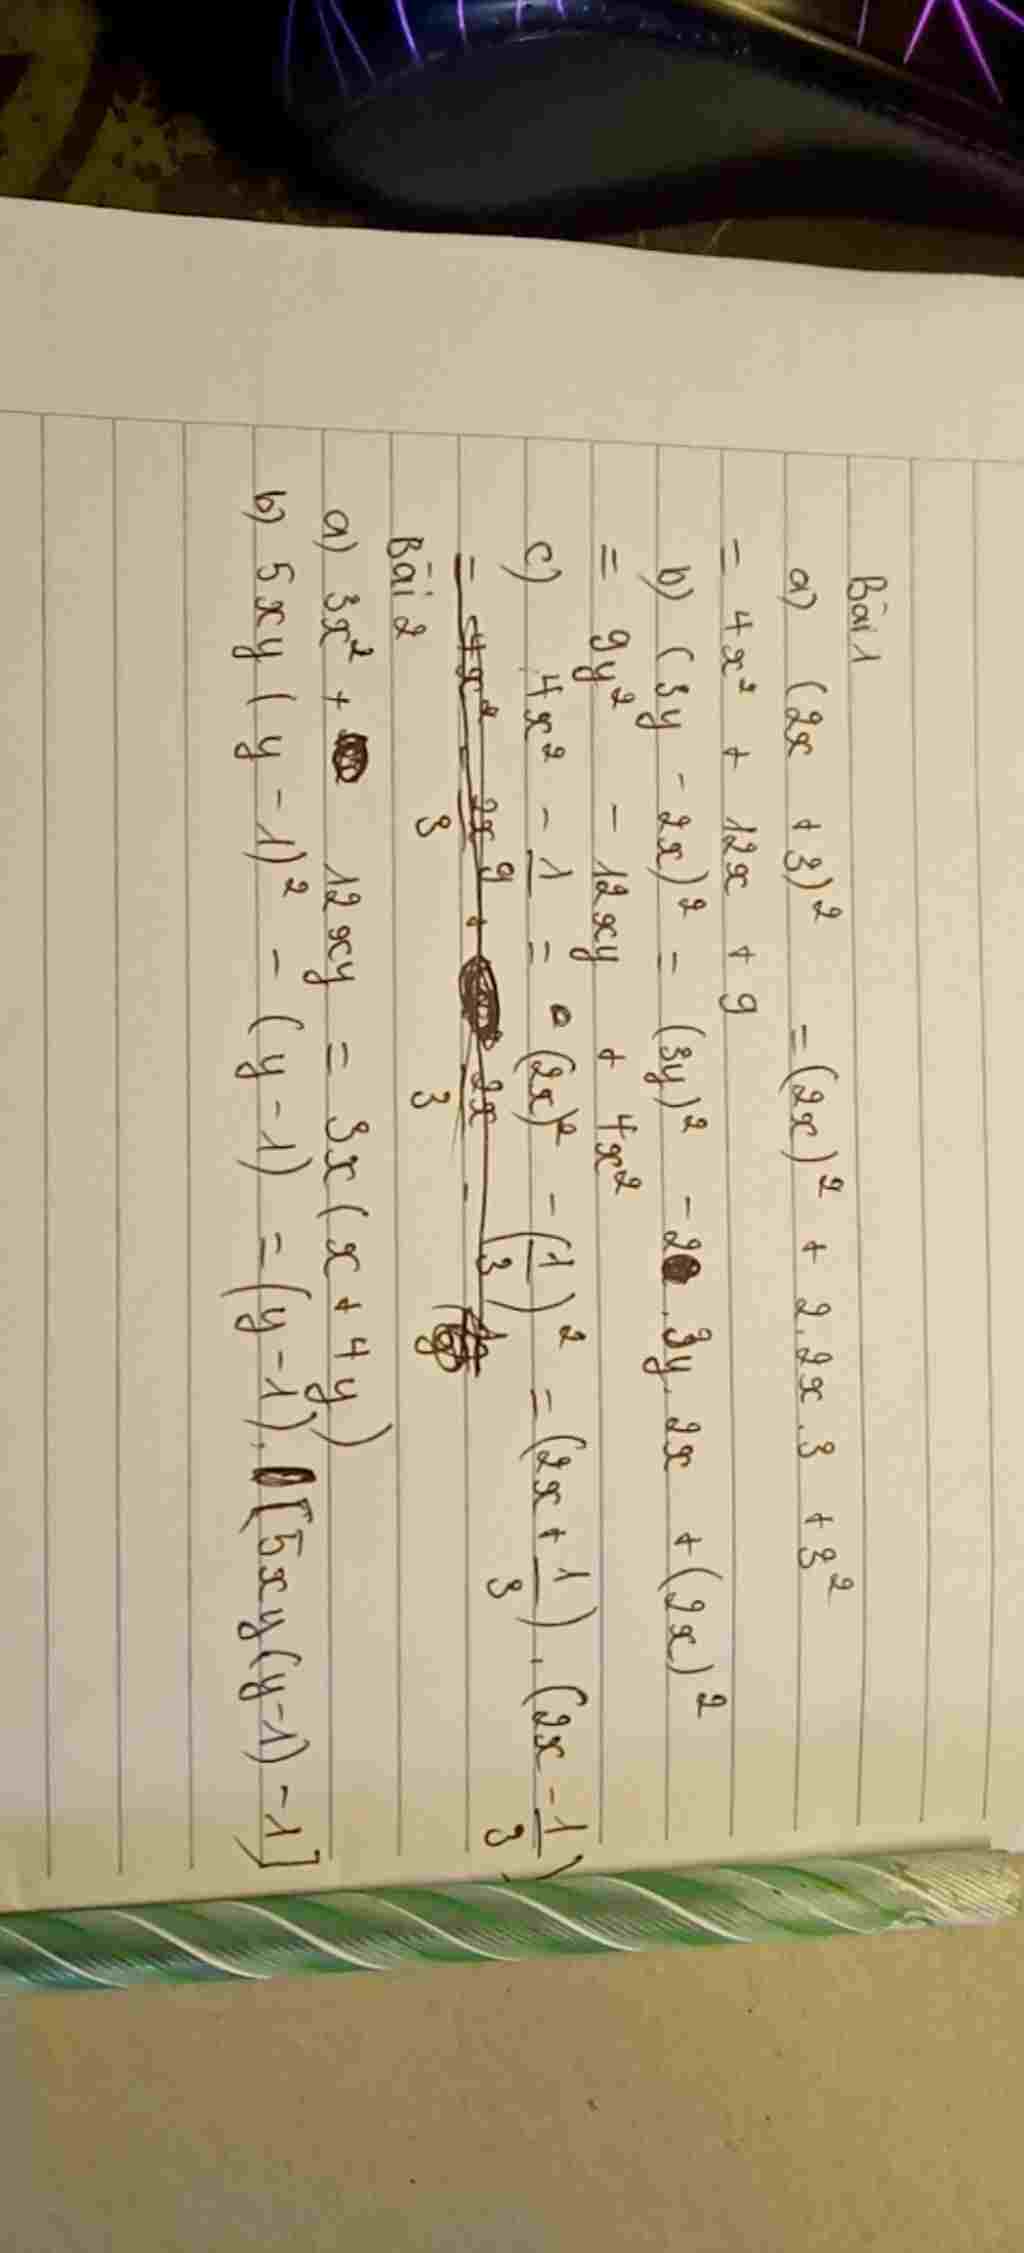 Bài 1
a) (2x + 3)² = (2x)² + 2.2x.3 + 3²
= 4x² + 12x + 9
b) (3y - 2x)² = (3y)² - 2.3y.2x + (2x)²
= 9y² - 12xy + 4x²
c) 4x² - 1/9 = (2x)² - (1/3)² = (2x + 1/3).(2x - 1/3)
= 4x² - 2x/3 + 2x/3 -
Bài 2
a) 3x² + 12xy = 3x(x + 4y)
b) 5xy(y - 1)² - (y - 1) = (y - 1).[5xy(y - 1) - 1]